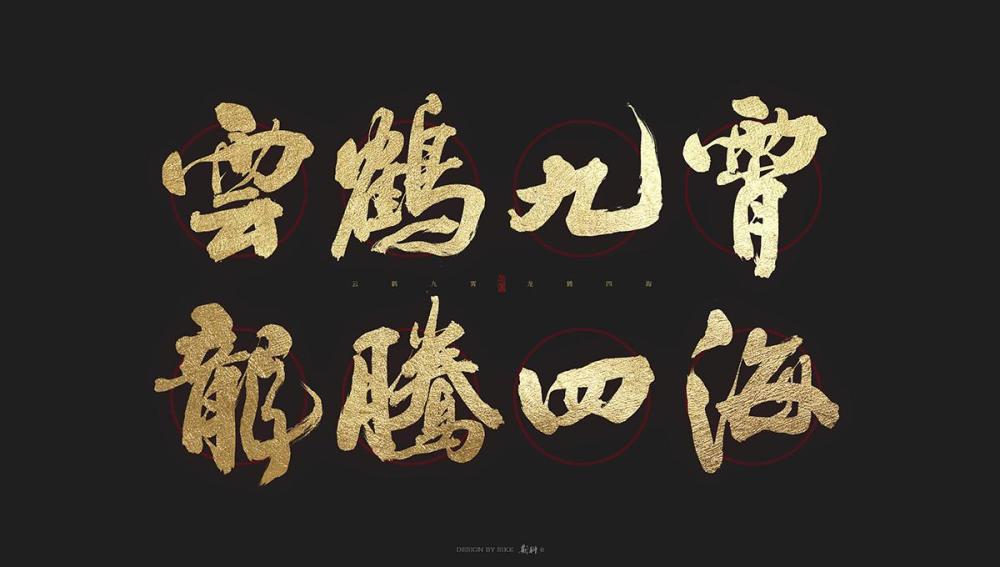 雲鶴九霄
云鹤九霄 龙腾四海
龍騰四海
DESIGN BY BIKE